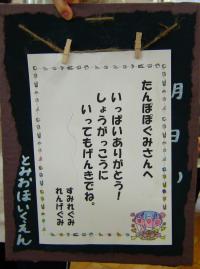 たんぽぽぐみさんへ
いっぱいありがとう!
しょうがっこうに
いってもげんきでね。
すみれぐみ
れんげぐみ
月
日
とみおほいくえん